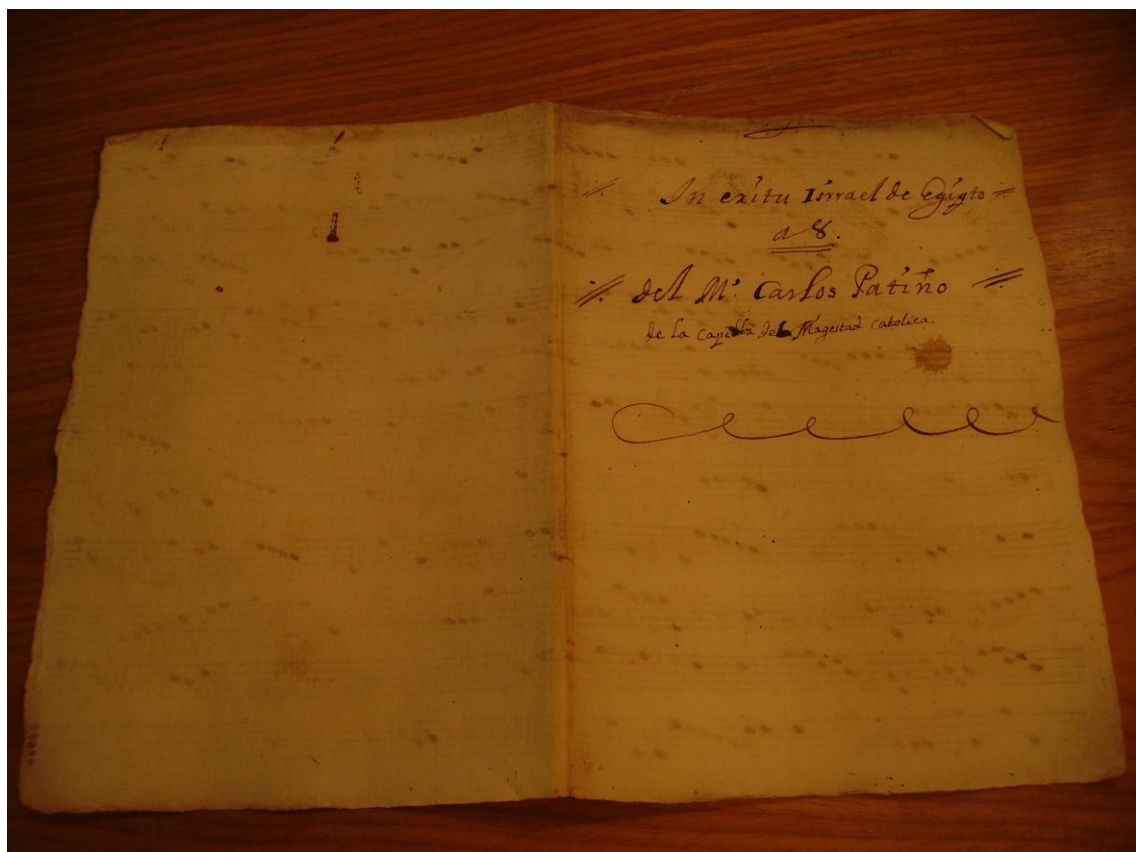 In exitu Isrrael de egipto
a 8.
del M.º Carlos Patiño
de la capilla de la Magestad catolica